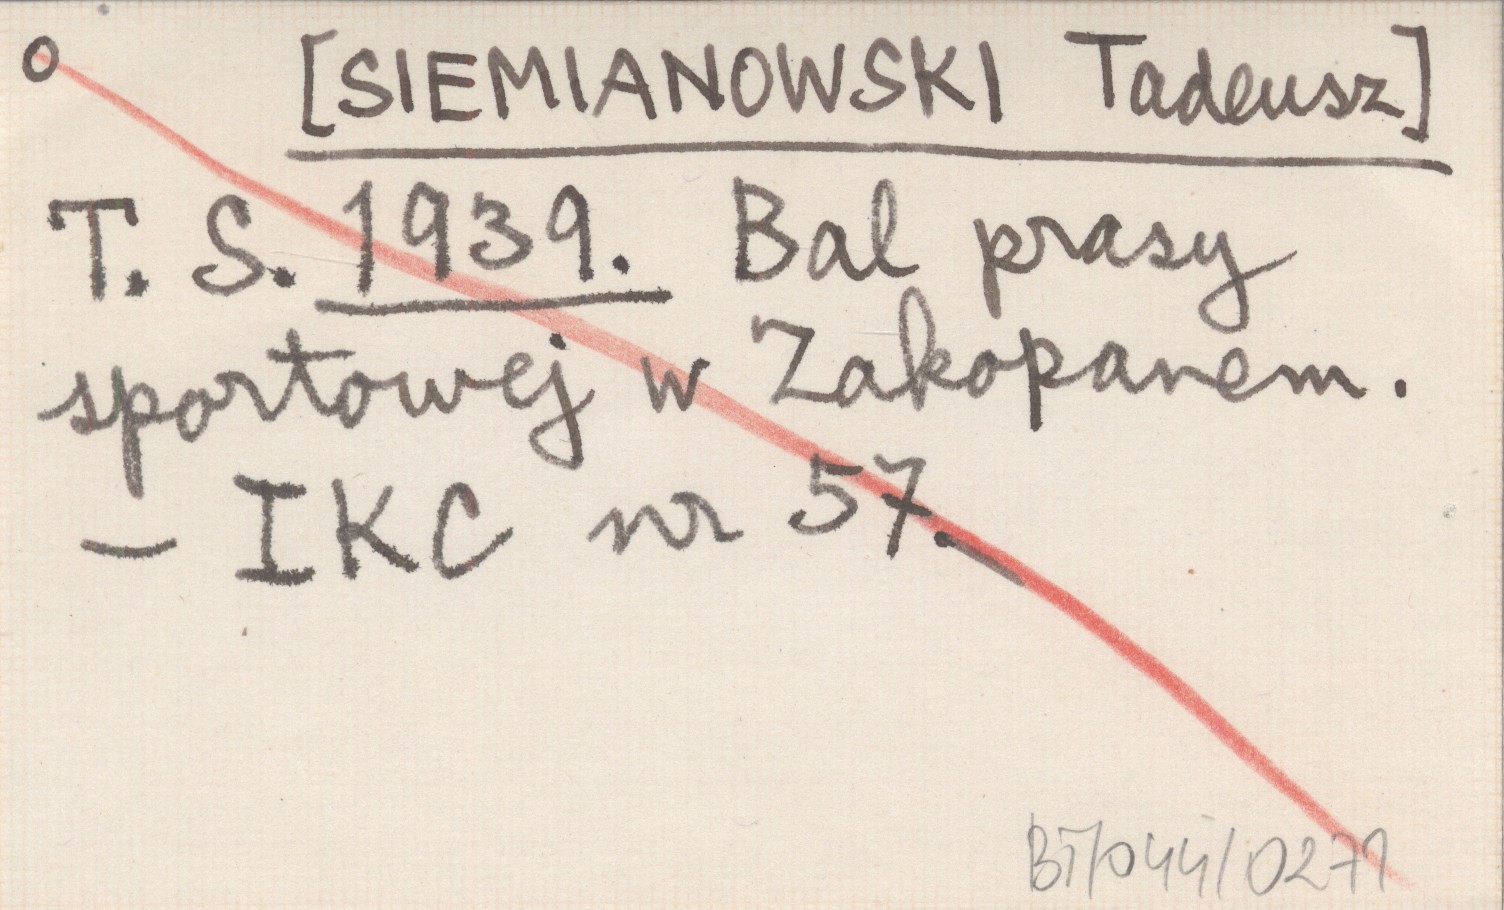 o [SIEMIANOWSKI Tadeusz]
T. S. 1939. Bal prasy
sportowej w Zakopanem.
— IKC nr 57.
BT/044/0271